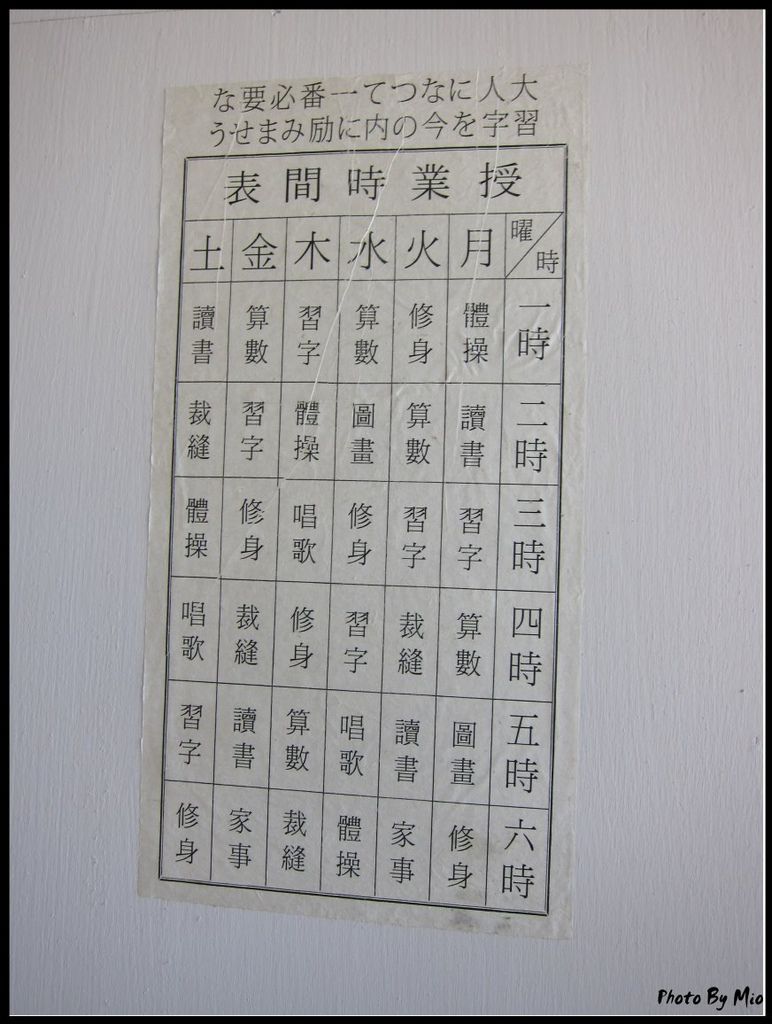 大人になつて一番必要な
習字を今の内に励みませう
授業時間表
曜 時 月 火 水 木 金 土
一時 體操 修身 算數 習字 算數 讀書
二時 讀書 算數 圖畫 體操 習字 裁縫
三時 習字 習字 修身 唱歌 修身 體操
四時 算數 裁縫 習字 修身 裁縫 唱歌
五時 圖畫 讀書 唱歌 算數 讀書 習字
六時 修身 家事 體操 裁縫 家事 修身
Photo By Mio